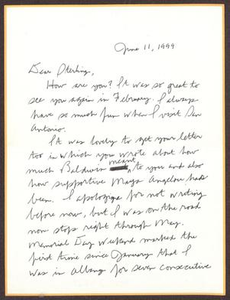 June 11, 1999
Dear Sterling,
How are you? It was so great to
see you again in February. I always
have so much fun when I visit San
Antonio.
It was lovely to get your letter
too in which you wrote about how
much Baldwin meant to you and also
how supportive Maya Angelou had
been. I apologize for not writing
before now, but I was on the road
non stop right through May.
Memorial Day weekend marked the
first time since January that I
was in albany for seven consecutive